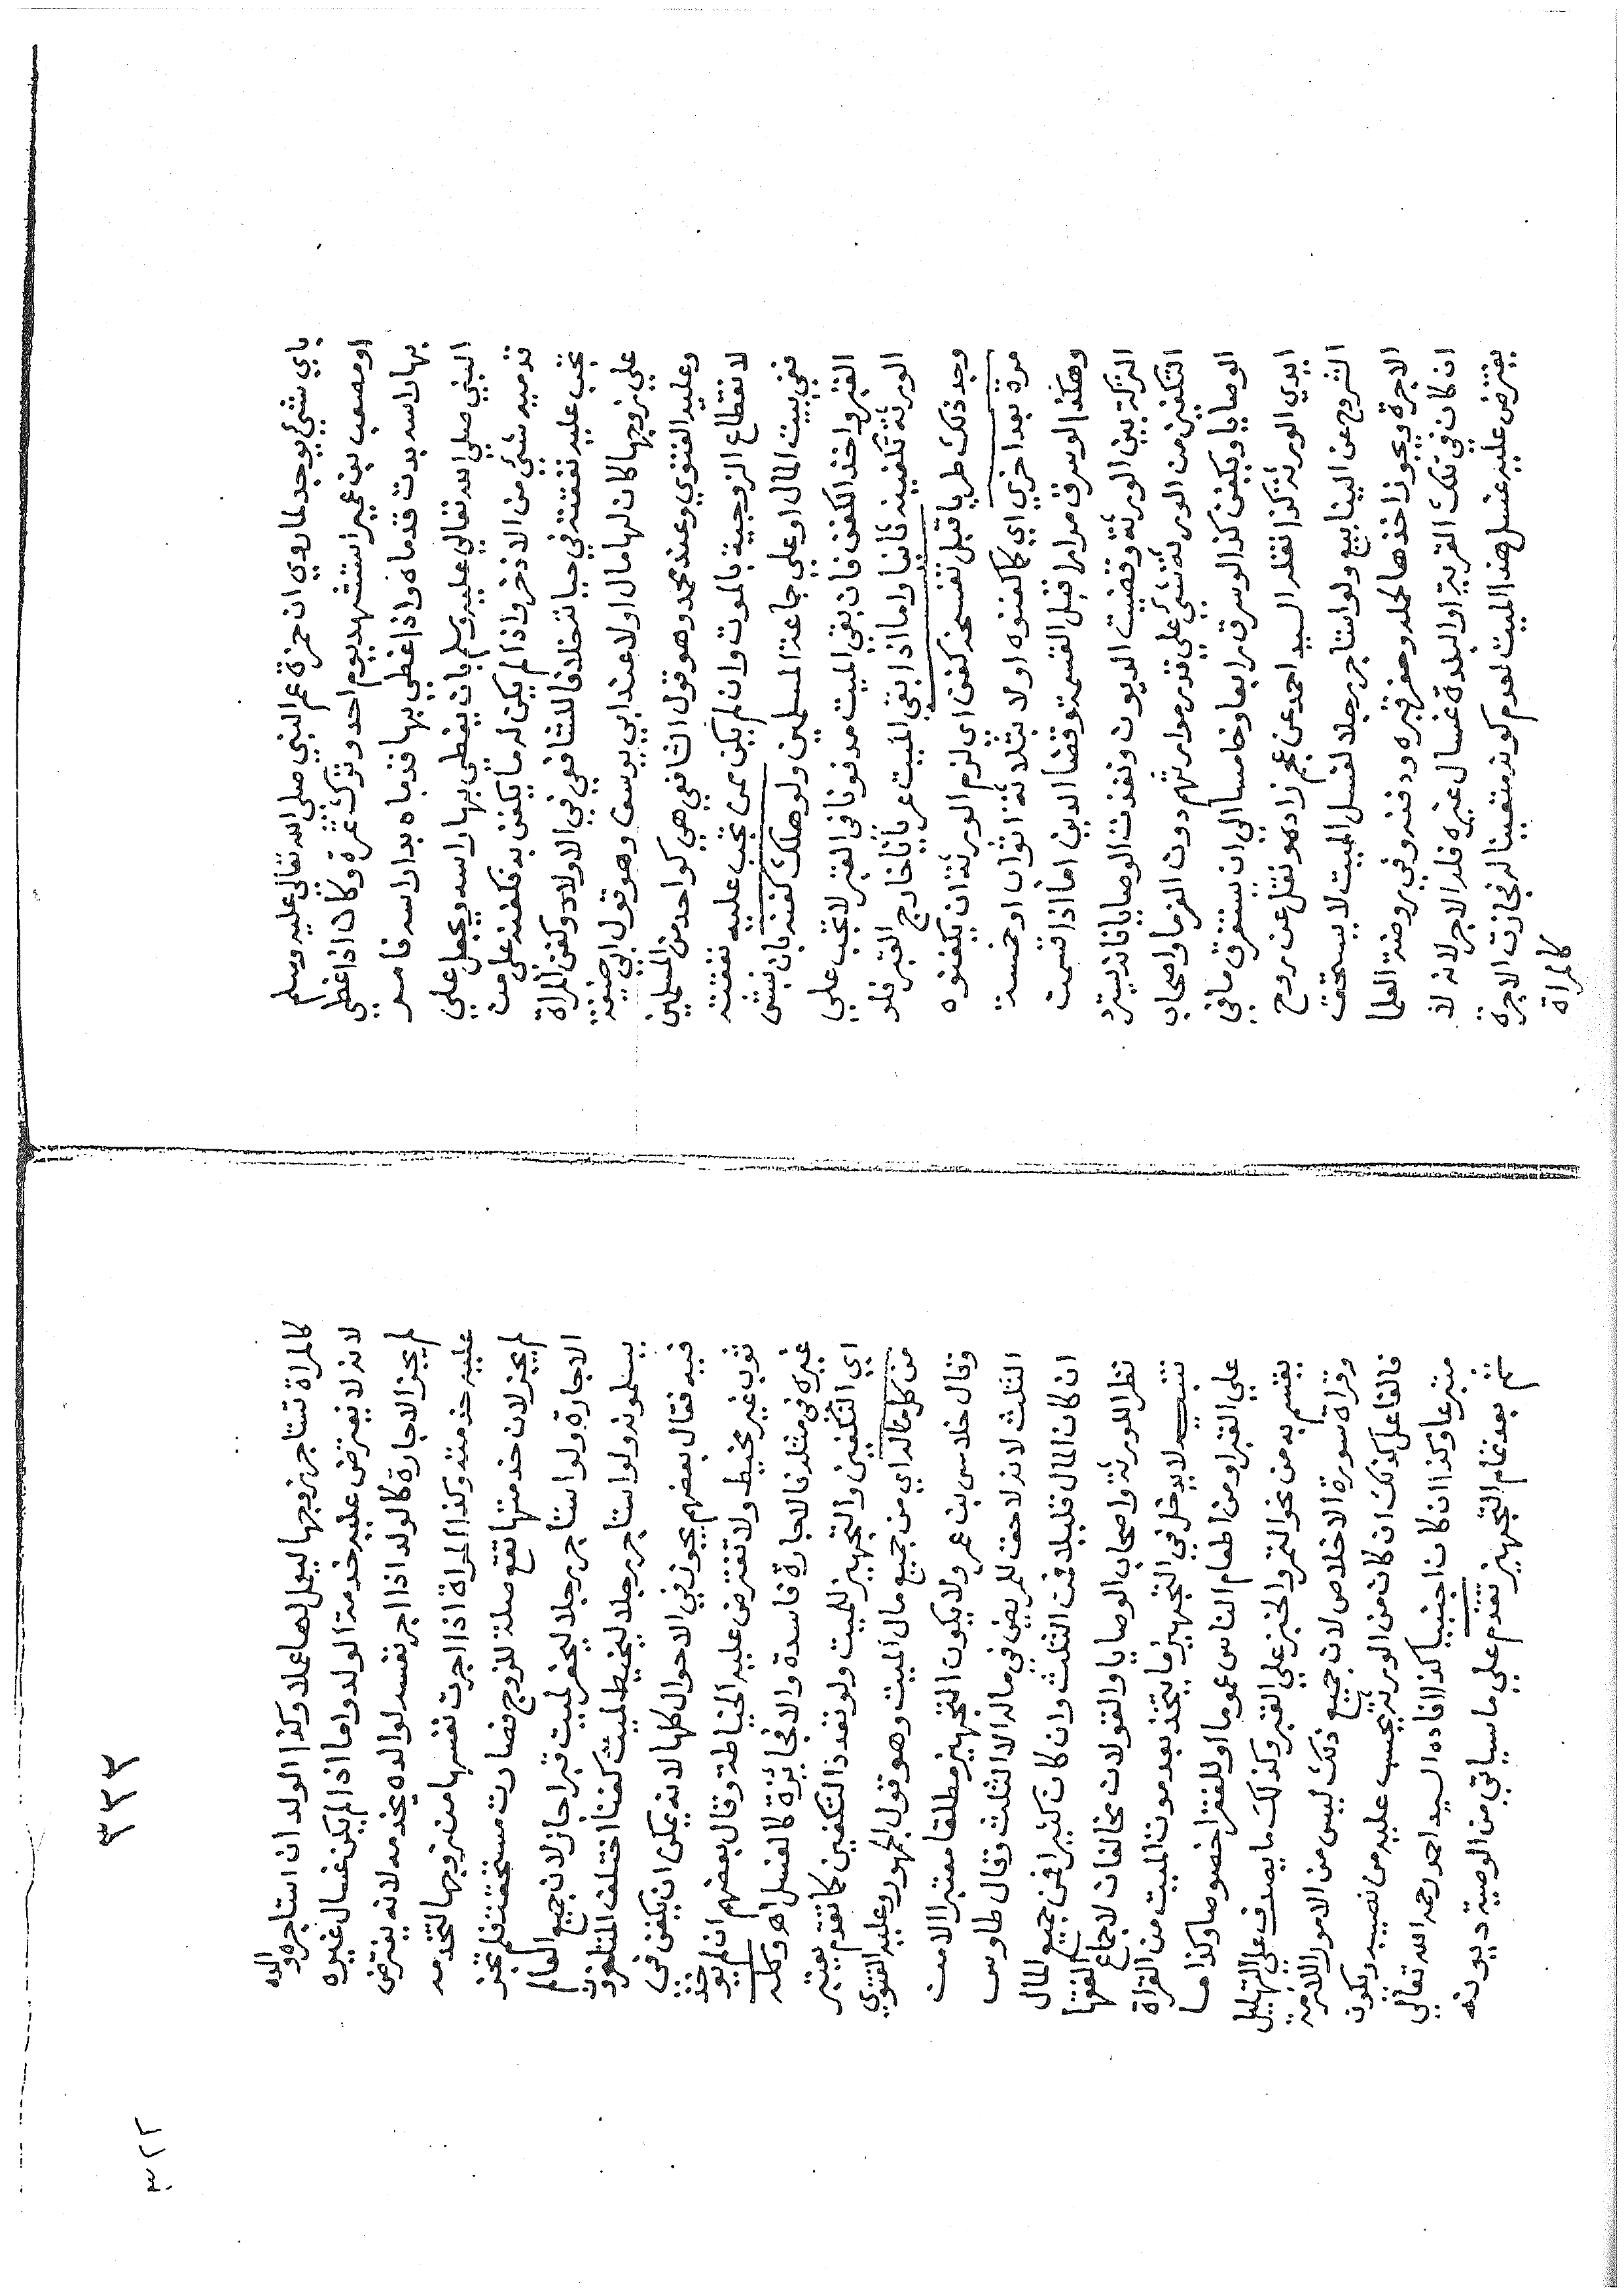 باي شيء يوجد لما روي ان حمزة عم النبي صلى الله تعالى عليه وسلم
او مصعب بن عمير استشهد يوم احد وترك نمرة وكان اذا غطي
بها راسه بدت قدماه واذا غطي بها قدماه بدا راسه فامر
النبي صلى الله تعالي عليه وسلم بان يغطي بها راسه ويجعل علي
قدميه شيء من الاذخر واذا لم يكن له ما يكفن به فكفنه على من
تجب عليه نفقته في حياته خلافا للشافعي في الاولاد وكفن المراة
علي زوجها كان لها مال اولا عند ابي يوسف وهو قول ابي حنيفة
وعليه الفتوي وعند محمد وهو قول الشافعي هي كواحد من المسلمين
لانقطاع الزوجية بالموت وان لم يكن من تجب عليه نفقته
ففي بيت المال او علي جماعة المسلمين ولو هلك كفنه بان نبش
القبر واخذ الكفن فان بقي الميت مدفونا في القبر لا تجب علي
الورثة تكفينه ثانيا واما اذا بقي الميت عريانا خارج القبر فلو
وجد ذلك طريا قبل تفسخه كفن اي لزم الورثة ان يكفنوه
مرة بعد اخري اي كما كفنوه اولا بثلاثة اثواب او خمسة
وهكذا لو سرق مرارا قبل القسمة وقضا الدين اما اذا قسمت
التركة بين الورثة وقضيت الديون ونفذت الوصايا فانه يسترد
التكفين من الورثة شيء علي قدر مواريثهم دون الغرما واصحاب
الوصايا ويكفن كذا لو سرق رابعا وخامسا الي ان يستغرق ما في
ايدي الورثة كذا نقله السيد احمد عن عجم زاده ونقل عن روح
الشروح عن الينابيع ولو استاجر رجلا لغسل الميت لا يستحق
الاجرة ويجوز اخذها لحمله وحفر قبره ودفنه وفي روضة العلما
ان كان في تلك القرية او البلدة غسال غيره فله الاجر لانه لا
يفترض عليه غسل هذا الميت لعدم كونه متعينا له فجازت الاجرة
كالمراة
٣٣٣
٣٢٢
كالمراة تستاجر زوجها ليعمل لها عملا وكذا الولد ان استاجره والده
لانه لا يفترض عليه خدمة الولد واما اذا لم يكن غسال غيره
لم يجز الاجارة كالولد اذا اجر نفسه لوالده يخدمه لانه يفترض
عليه خدمته وكذا المراة اذا اجرت نفسها من زوجها لتخدمه
لم يجز لان خدمتها تقع صلة للزوج فصارت مستحقة فلم تجز
الاجارة ولو استاجر رجلا ليحفر لميت قبرا جاز لان جميع العالم
يسلمونه ولو استاجر رجلا ليخيط لميت كفنا اختلف المتاخرون
فيه فقال بعضهم يجوز في الاحوال كلها لانه يمكن ان يكفن في
ثوب غير مخيط ولا تفترض عليه الخياطة وقال بعضهم ان لم يوجد
غيره في مثله فالاجارة فاسدة والا فجائزة كالغسل اهـ وكله
اي التكفين والتجهيز للميت ولو تعدد التكفين كما تقدم يعتبر
من كل ماله اي من جميع مال الميت وهو قول الجمهور وعليه الفتوي
وقال خلاس بن عمرو لا يكون التجهيز مطلقا معتبرا الا من
الثلث لانه لا حق للمريض في ماله الا الثلث وقال طاوس
ان كان المال قليلا فمن الثلث وان كان كثيرا فمن جميع المال
نظرا للورثة واصحاب الوصايا والقولان مخالفان لاجماع الفقها
تنبيه لا يدخل في التجهيز ما يتخذ بعد موت الميت من القراة
علي القبر او من اطعام الناس عموما او للفقرا خصوصا وكذا ما
يقسم به من نحو التمر والخبز علي القبر وكذلك ما يصرف علي التهليل
وقراة سورة الاخلاص لان جميع ذلك ليس من الامور اللازمة
فالفاعل لذلك ان كان من الورثة يحسب عليه من نصيبه ويكون
متبرعا وكذا ان كان اجنبيا كذا افاده السيد احمد رحمه الله تعالي
ثم بعد تمام التجهيز تقدم علي ما سياتي من الوصية ديونه